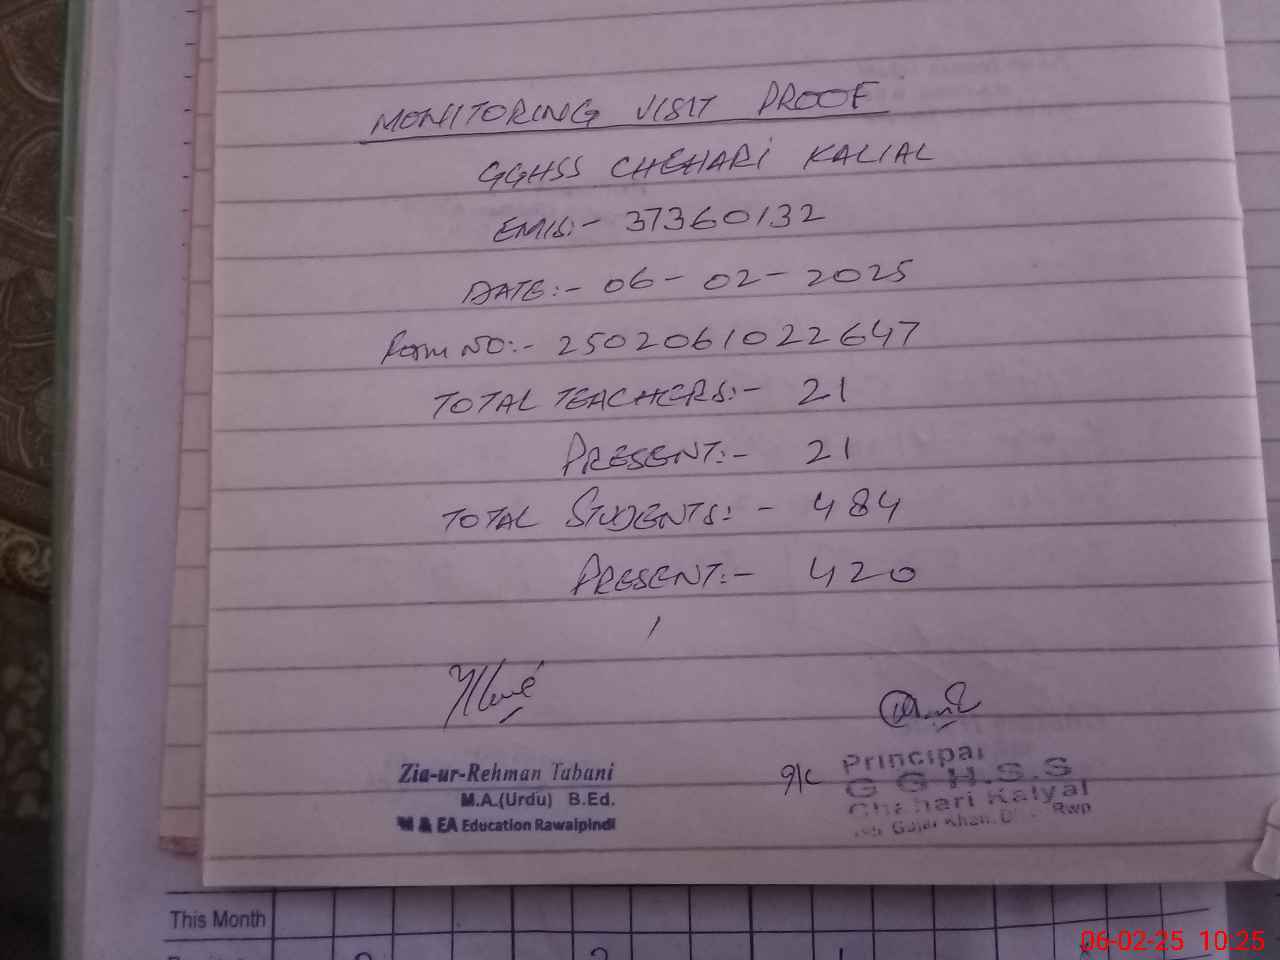 MONITORING VISIT PROOF
GGHSS CHEHARI KALIAL
EMIS:- 37360132
DATE:- 06-02-2025
Form NO:- 2502061022647
TOTAL TEACHERS:- 21
PRESENT:- 21
TOTAL STUDENTS:- 484
PRESENT:- 420
Zia-ur-Rehman Tabani
M.A.(Urdu) B.Ed.
M & EA Education Rawalpindi
I/C Principal
G G H.S.S
Chahari Kalyal
Gujar Khan. Rwp
This Month
06-02-25 10:25